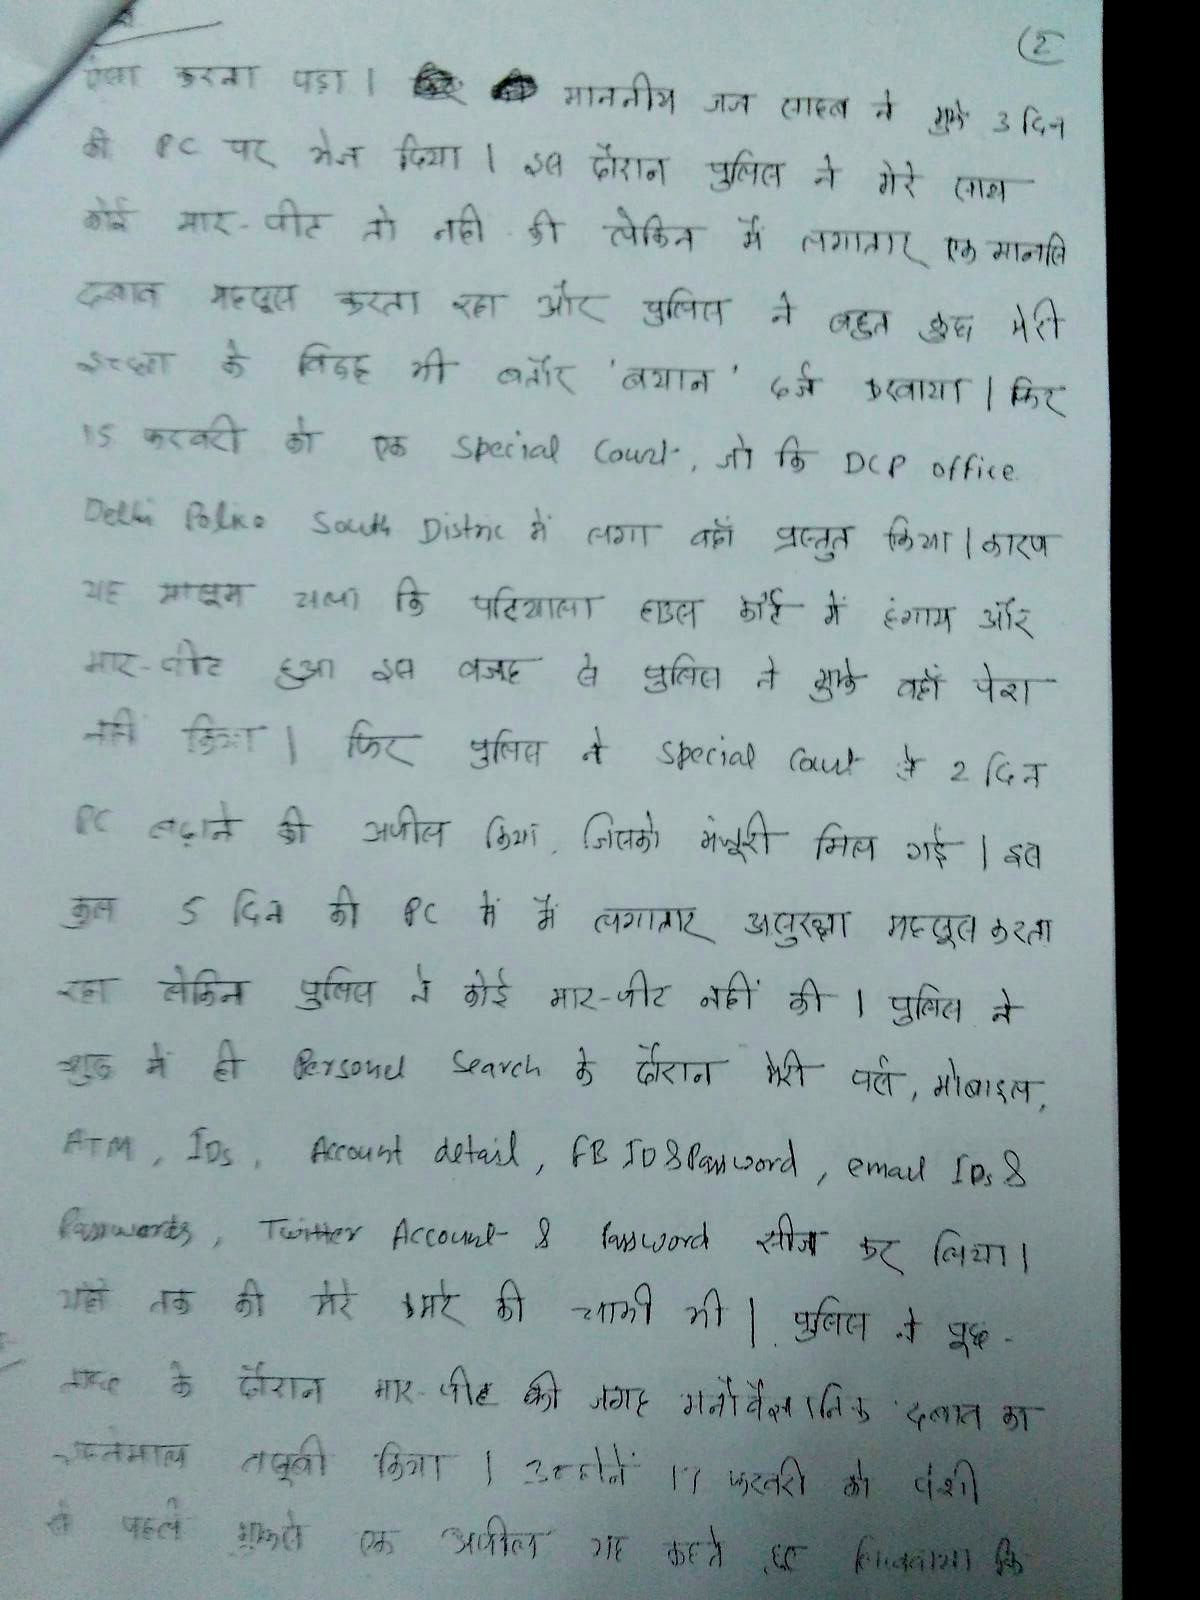 (2)
ऐसा करना पड़ा । माननीय जज साहब ने मुझे 3 दिन
की PC पर भेज दिया । इस दौरान पुलिस ने मेरे साथ
कोई मार-पीट तो नही की लेकिन मैं लगातार एक मानसि
दबाव महसूस करता रहा और पुलिस ने बहुत कुछ मेरी
इच्छा के विरुद्ध भी बतौर 'बयान' दर्ज करवाया । फिर
15 फरवरी को एक Special Court, जो कि DCP office
Delhi Police South Distric में लगा वहाँ प्रस्तुत किया । कारण
यह मालूम चला कि पटियाला हाउस कोर्ट में हंगाम और
मार-पीट हुआ इस वजह से पुलिस ने मुझे वहाँ पेश
नहीं किया । फिर पुलिस ने special Court से 2 दिन
PC बढ़ाने की अपील किया, जिसको मंजूरी मिल गई । इस
कुल 5 दिन की PC में मैं लगातार असुरक्षा महसूस करता
रहा लेकिन पुलिस ने कोई मार-पीट नहीं की । पुलिस ने
शुरू में ही Personel Search के दौरान मेरी पर्स, मोबाइल,
ATM, IDs, Account detail, FB ID & Password, email IDs &
Passwords, Twitter Account & Password सीज कर लिया ।
यहाँ तक की मेरे कमरे की चाभी भी । पुलिस ने पूछ-
ताछ के दौरान मार-पीट की जगह मनोवैज्ञानिक दबाव का
इस्तेमाल बखूबी किया । उन्होनें 17 फरवरी को पेशी
से पहले मुझसे एक अपील यह कहते हुए लिखवाया कि